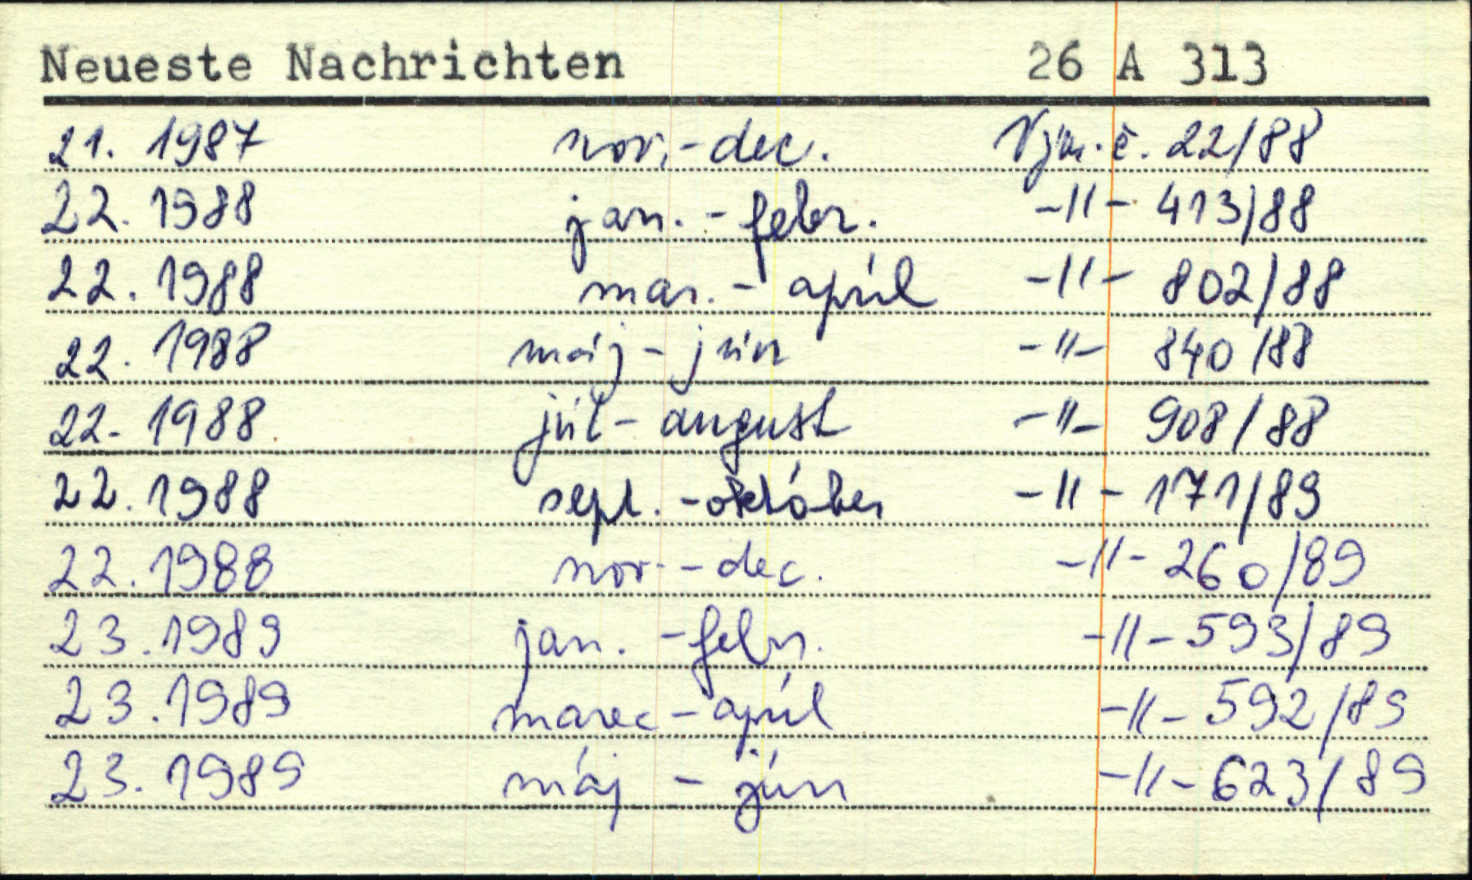 Neueste Nachrichten 26 A 313
21. 1987 nov.-dec. Vým.č. 22/88
22. 1988 jan. - febr. -//- 413/88
22. 1988 mar. - apríl -//- 802/88
22. 1988 máj - jún -//- 840/88
22. 1988 júl - august -//- 908/88
22. 1988 sept. - október -//- 171/89
22. 1988 nov. - dec. -//- 260/89
23. 1989 jan. - febr. -//- 593/89
23. 1989 marec - apríl -//- 592/89
23. 1989 máj - jún -//- 623/89